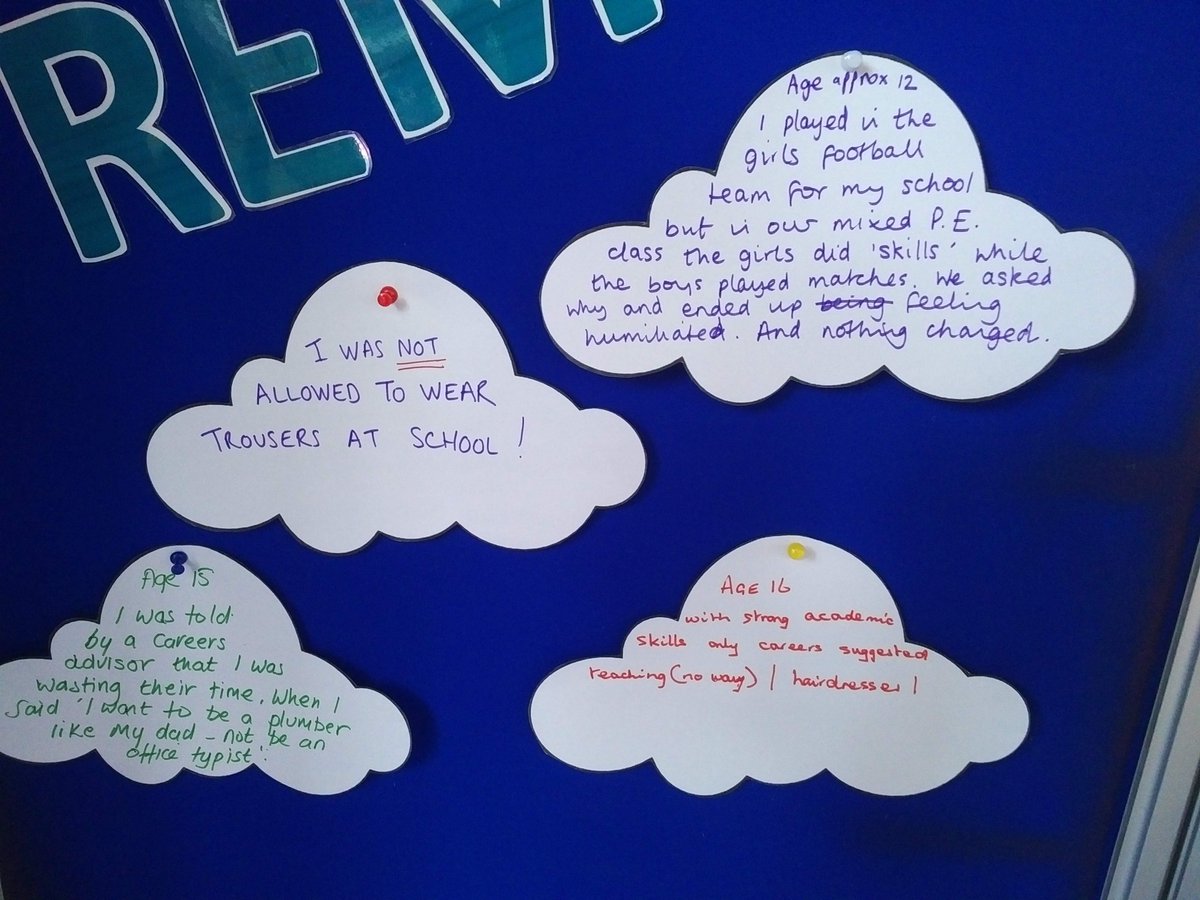 REM
Age approx 12
I played in the
girls football
team for my school
but in our mixed P.E.
class the girls did 'skills' while
the boys played matches. We asked
why and ended up being feeling
humiliated. And nothing changed.
I WAS NOT
ALLOWED TO WEAR
TROUSERS AT SCHOOL!
Age 15
I was told
by a careers
advisor that I was
wasting their time. When I
said 'I want to be a plumber
like my dad - not be an
office typist'!
AGE 16
with strong academic
skills only careers suggested
teaching (no way) / hairdresser!